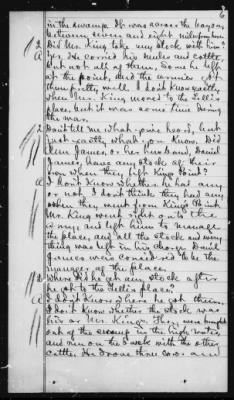 6
in the swamp. It was across the bayou
between seven and eight miles from home
2 Did Mr. King take any stock with him?
A Yes. He carried his mules and cattle
but not all of them. Some he left
at the point, and the armies got
them pretty well. I don't know exactly
when Mr. King moved to the
place, but it was some time during
the war.
2 Don't tell me what you've heard, but
just exactly what you know. Did
Ellen James, or her husband, David
James, have any stock of their
own when they left King's Point?
A I don't know whether he had any
or not. I don't think they had any
when they went from King's Point
Mr. King went right on to the
and left him to manage
the place, and all the stock and every
thing was left in his charge. David
James was considered to be the
manager of the place.
2 Where did he get any stock after
he got to the place?
A I don't know where he got them.
I don't know whether the stock was
his or Mr. King's. They were brought
out of the swamp in the high water
and run on the with the other
cattle. He drove three cows and